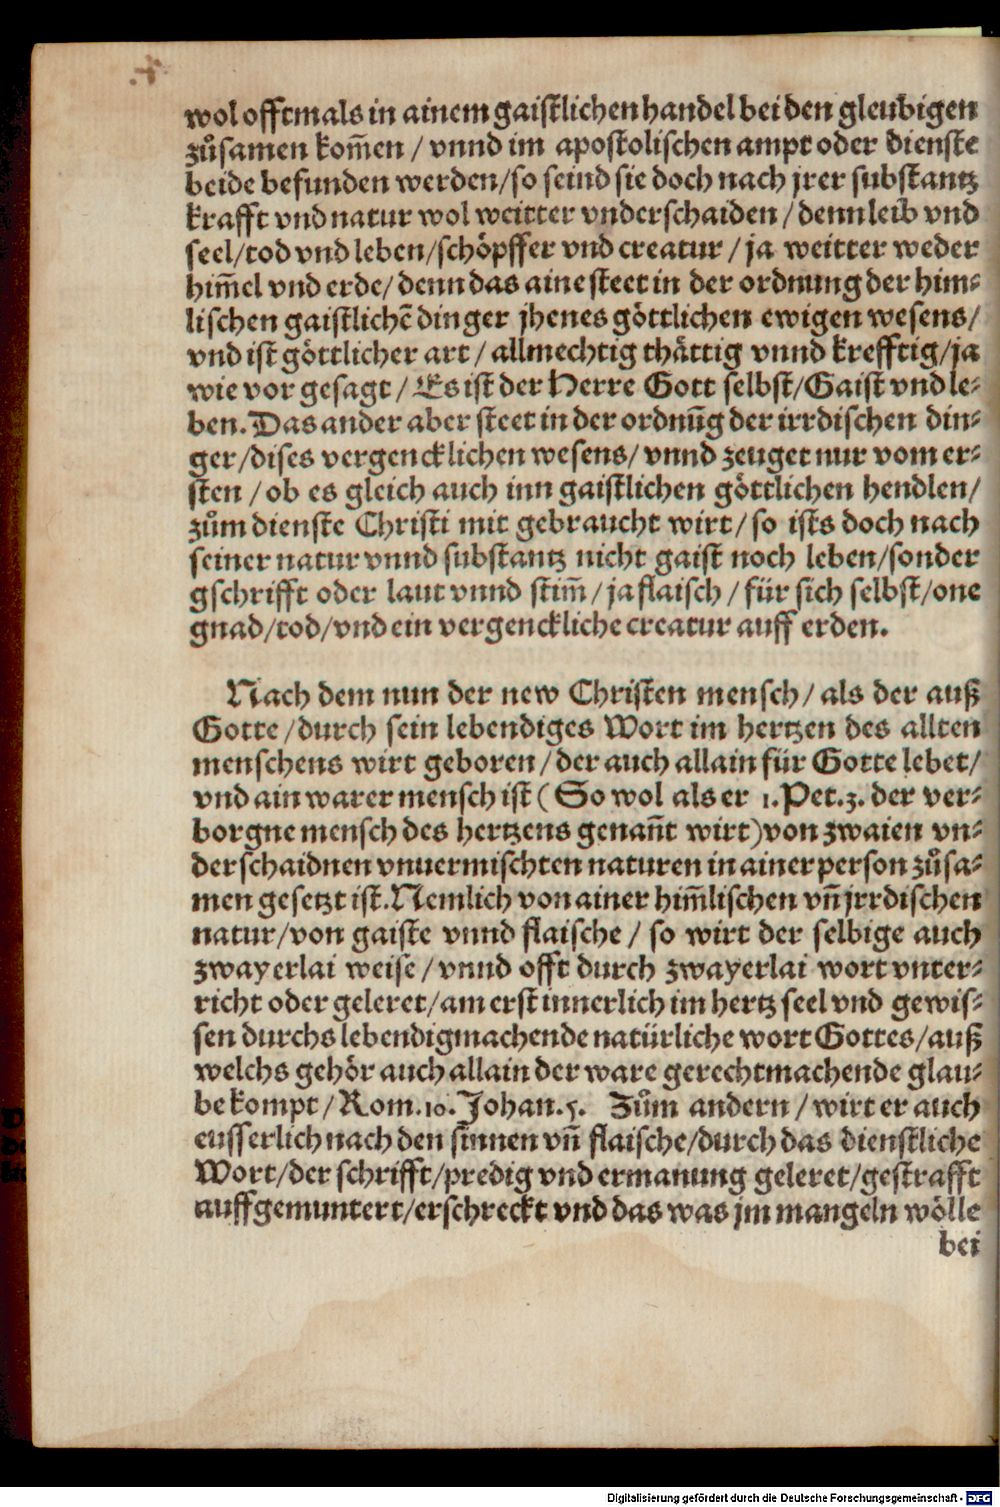 4.
wol offtmals in ainem gaistlichen handel bei den gleubigen
zůsamen kom̃en / vnnd im apostolischen ampt oder dienste
beide befunden werden/so seind sie doch nach jrer substantz
krafft vnd natur wol weitter vnderschaiden / denn leib vnd
seel/tod vnd leben/schöpffer vnd creatur / ja weitter weder
him̃el vnd erde/ denn das aine steet in der ordnung der him-
lischen gaistlichẽ dinger jhenes göttlichen ewigen wesens/
vnd ist göttlicher art / allmechtig thättig vnnd krefftig/ja
wie vor gesagt / Es ist der Herre Gott selbst/Gaist vnd le-
ben. Das ander aber steet in der ordnũg der irrdischen din-
ger/dises vergencklichen wesens/ vnnd zeuget nur vom er-
sten / ob es gleich auch inn gaistlichen göttlichen hendlen/
zům dienste Christi mit gebraucht wirt/ so ists doch nach
seiner natur vnnd substantz nicht gaist noch leben/sonder
gschrifft oder laut vnnd stim̃ / ja flaisch / für sich selbst/one
gnad/tod/vnd ein vergenckliche creatur auff erden.
Nach dem nun der new Christen mensch/ als der auß
Gotte /durch sein lebendiges Wort im hertzen des allten
menschens wirt geboren /der auch allain für Gotte lebet/
vnd ain warer mensch ist ( So wol als er 1. Pet. 3. der ver-
borgne mensch des hertzens genañt wirt) von zwaien vn-
derschaidnen vnuermischten naturen in ainer person zůsa-
men gesetzt ist. Nemlich von ainer him̃lischen vñ jrrdischen
natur/von gaiste vnnd flaische / so wirt der selbige auch
zwayerlai weise / vnnd offt durch zwayerlai wort vnter-
richt oder geleret/am erst innerlich im hertz seel vnd gewis-
sen durchs lebendigmachende natürliche wort Gottes/auß
welchs gehör auch allain der ware gerechtmachende glau-
be kompt / Rom. 10. Johan. 5. Zům andern / wirt er auch
eusserlich nach den sinnen vñ flaische/durch das dienstliche
Wort/der schrifft/predig vnd ermanung geleret/gestrafft
auffgemuntert/erschreckt vnd das was jm mangeln wölle
bei
Digitalisierung gefördert durch die Deutsche Forschungsgemeinschaft - DFG